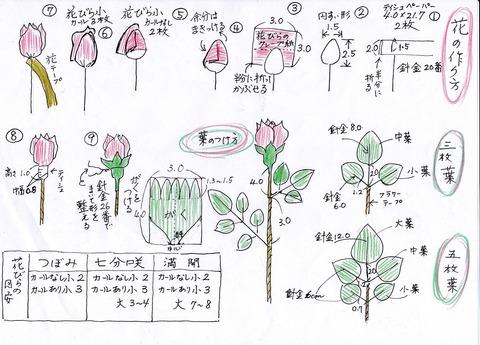 花の作り方
①
ティシュペーパー
4.0×21.7
2枚
2.0
1.5
半分に折る
針金20番
②
円すい形
1.5
2.5
③
3.0
花びらのクレープ紙
粉に折ってかぶせる
④
⑤
余分はまきつける
⑥
花びら小
カールなし
2枚
⑦
花びら小
カール3枚
花テープ
⑧
高さ1.0
幅0.8
ティーシュ
⑨
がくをつける
針金26番でまいて形を整える
3.0
1.3~1.5
4.0
がく
葉のつけ方
4.0
3.0
三枚葉
針金8.0
中葉
小葉
1.2
針金6.0
フラワーテープ
五枚葉
大葉
針金12.0
中葉
2.0
針金6cm
小葉
0.7
花びらの目安
つぼみ
七分咲
満開
カールなし小2
カールなし小2
カールなし小2
カールあり小3
カールあり小3
カールあり小3
大3~4
大7~8